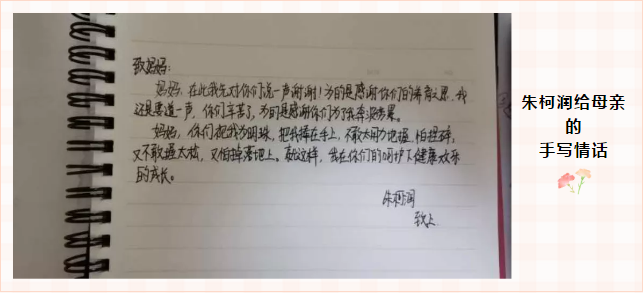 致妈妈：
妈妈，在此我先对你们说一声谢谢！为的是感谢你们的养育之恩，我
还是要道一声，你们辛苦了，为的是感谢你们为了我奔波劳累。
妈妈，你们把我当明珠，把我捧在手上，不敢大力地握，怕捏碎，
又不敢握太松，又怕掉落地上。就这样，我在你们的呵护下健康欢乐
的成长。
朱柯润
致上
朱柯润给母亲
的
手写情话